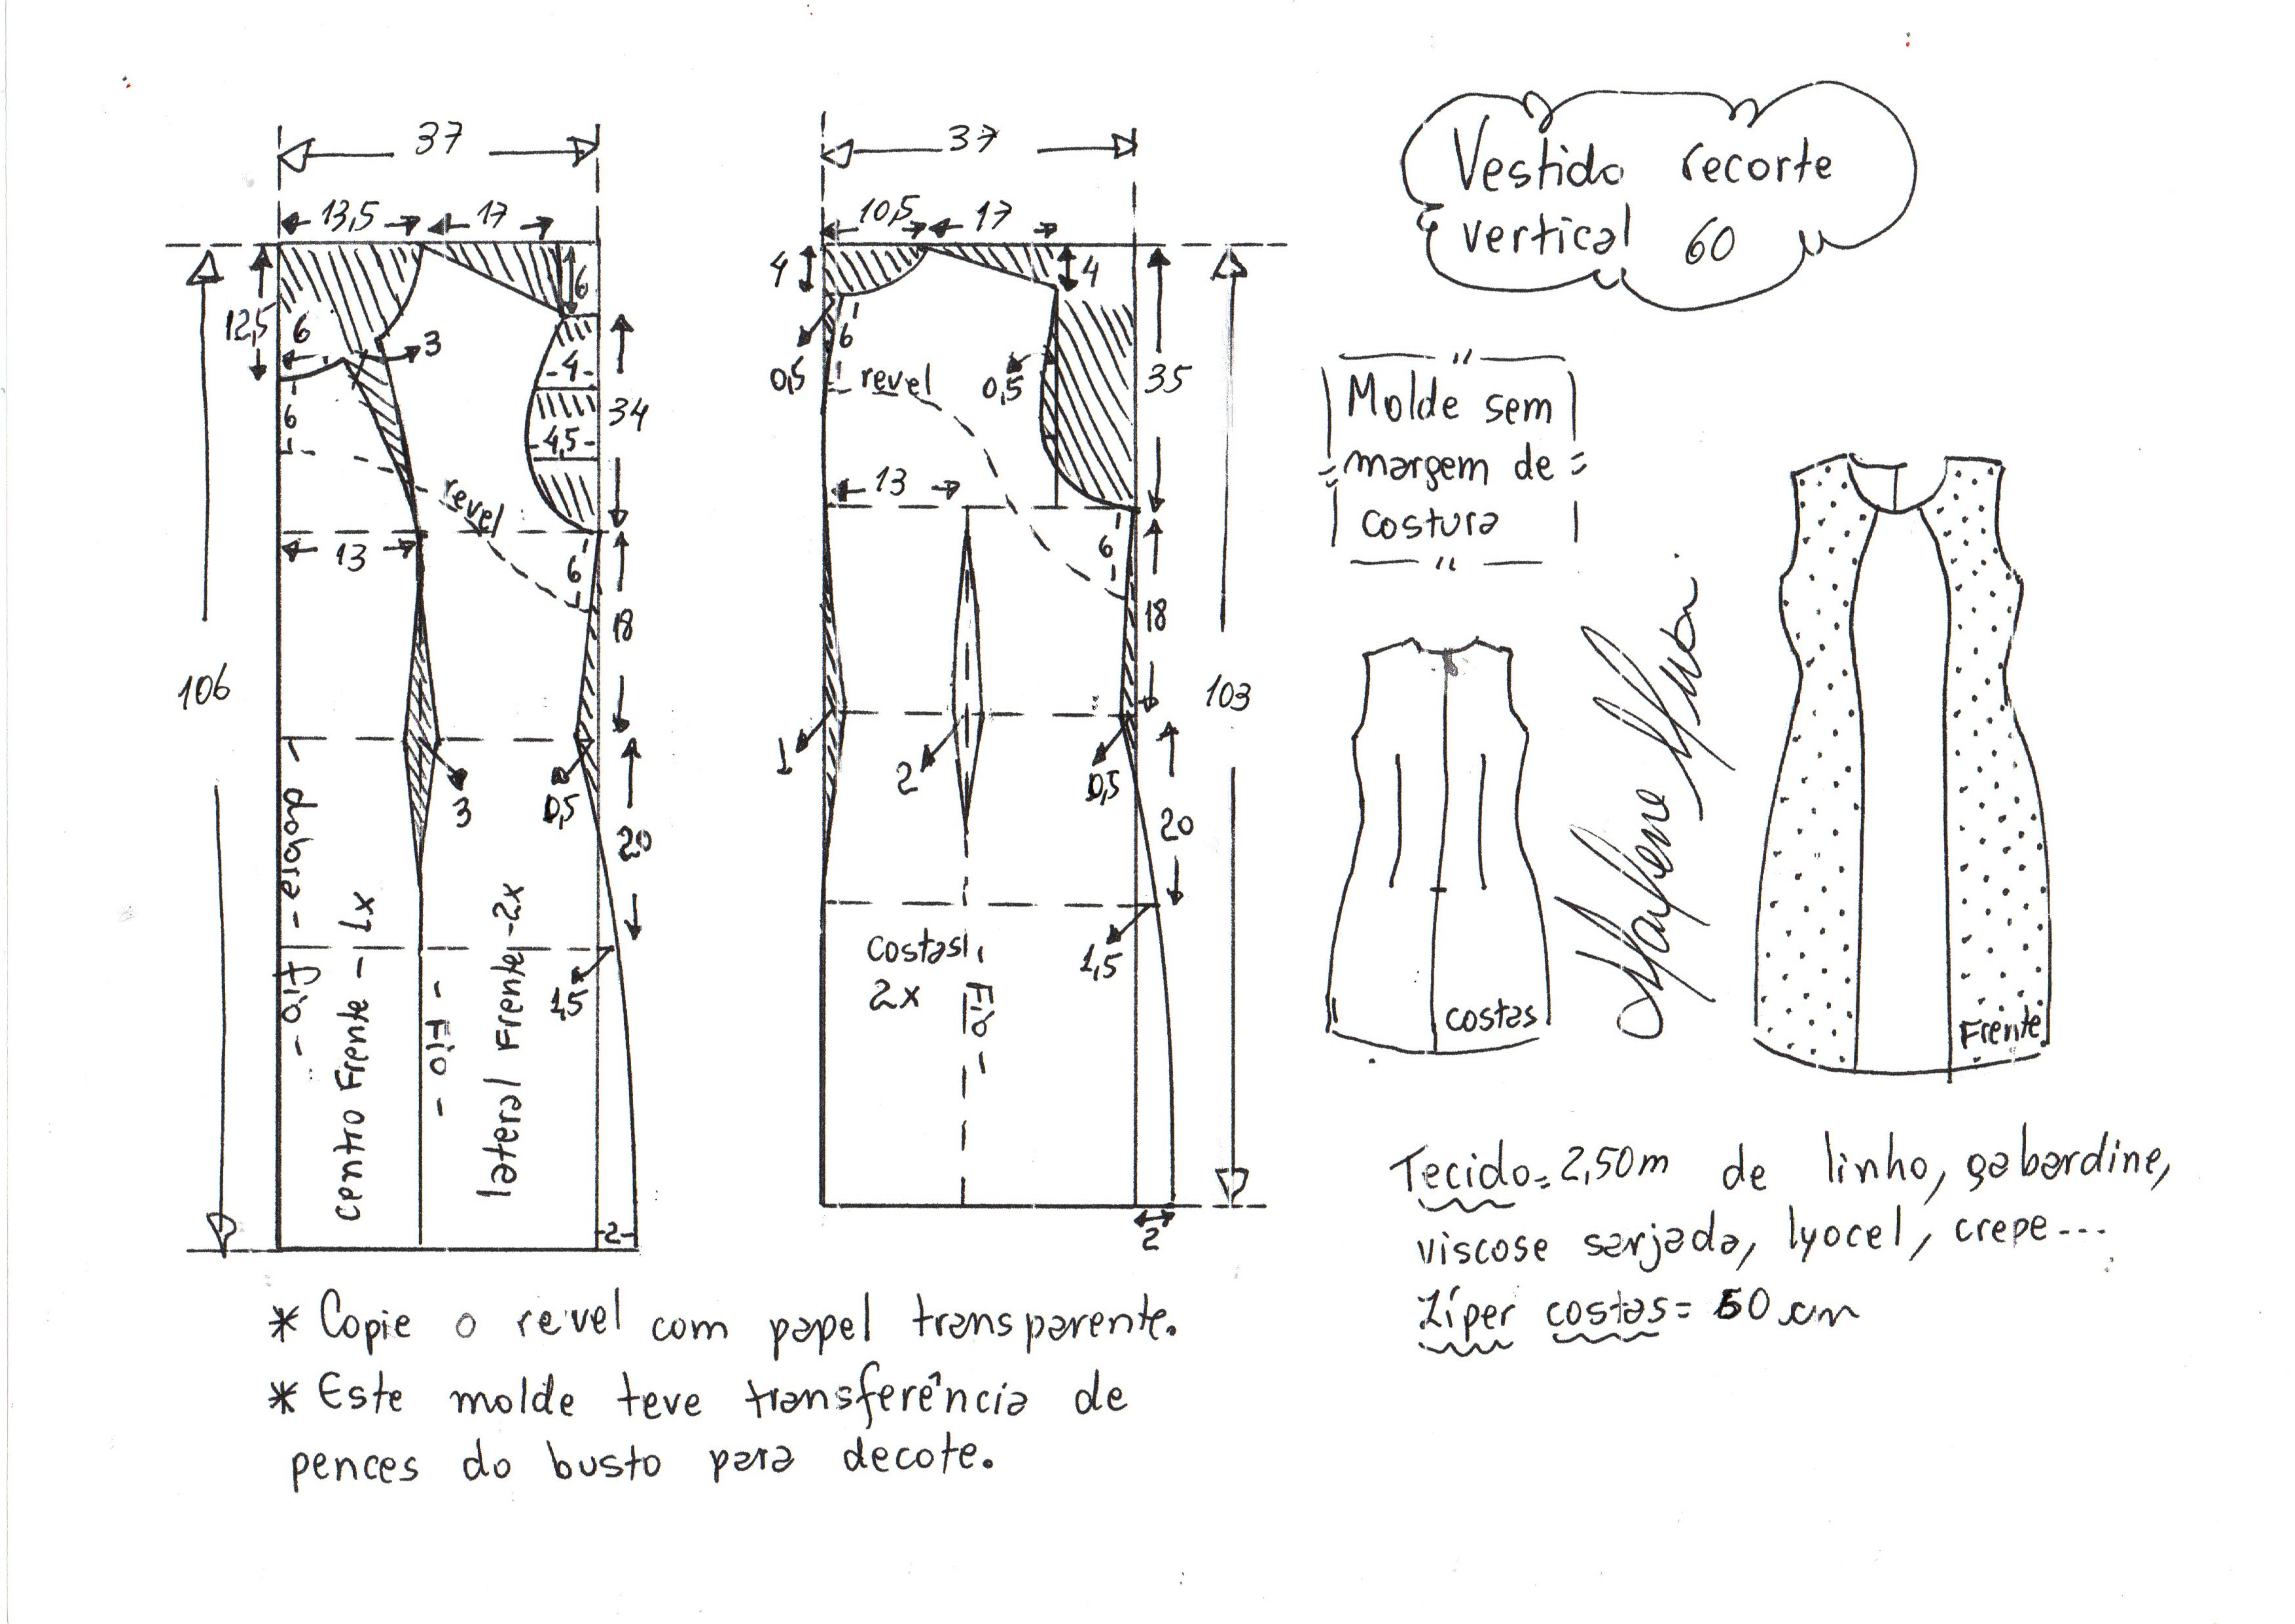 37
13,5 17
12,5
6
3
6
4
4,5
34
6
revel
13
6
18
106
3
0,5
20
dobra - fio -
centro Frente - 1x
- Fio -
lateral Frente - 2x
1,5
2
37
10,5 17
4
4
6
0,5
revel
0,5
35
13
6
18
103
1
2
0,5
20
costas
2x
Fio -
1,5
2
Vestido recorte
vertical 60
Molde sem
margem de
costura
Marlene
costas
Frente
Tecido = 2,50m de linho, gabardine,
viscose sarjada, lyocel, crepe...
Zíper costas = 50 cm
* Copie o revel com papel transparente.
* Este molde teve transferência de
pences do busto para decote.